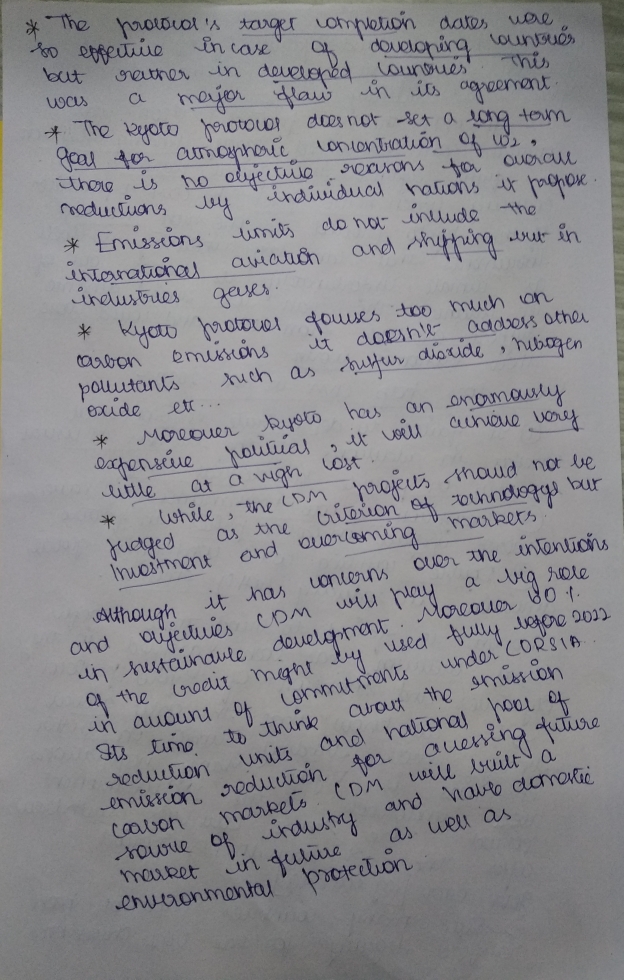 * The protocol's target completion dates were
so effective incase of developing countries
but rather in developed countries. This
was a major flaw in its agreement.
* The kyoto protocol does not set a long term
goal for atmospheric concentration of co2,
there is no objective reasons for overall
reductions by individual nations it propose.
* Emissions limits do not include the
international aviation and shipping but in
industries gases.
* Kyoto protocol focuses too much on
carbon emissions it doesn't address other
pollutants such as sulfur dioxide, nitrogen
oxide etc...
* Moreover kyoto has an enormously
expensive political, it will achieve very
little at a high cost.
* While, the CDM projects should not be
judged as the criterion of technology but
Investment and overcoming markets.
Although it has concerns over the intentions
and objectives CDM will play a big role
in sustainable development. Moreover 60%
of the credit might by used fully before 2022
in amount of commitments under CORSIA.
Its time to think about the emission
reduction units and national pool of
emission reduction for accessing future
carbon markets. CDM will built a
source of industry and have domestic
market in future as well as
environmental protection.